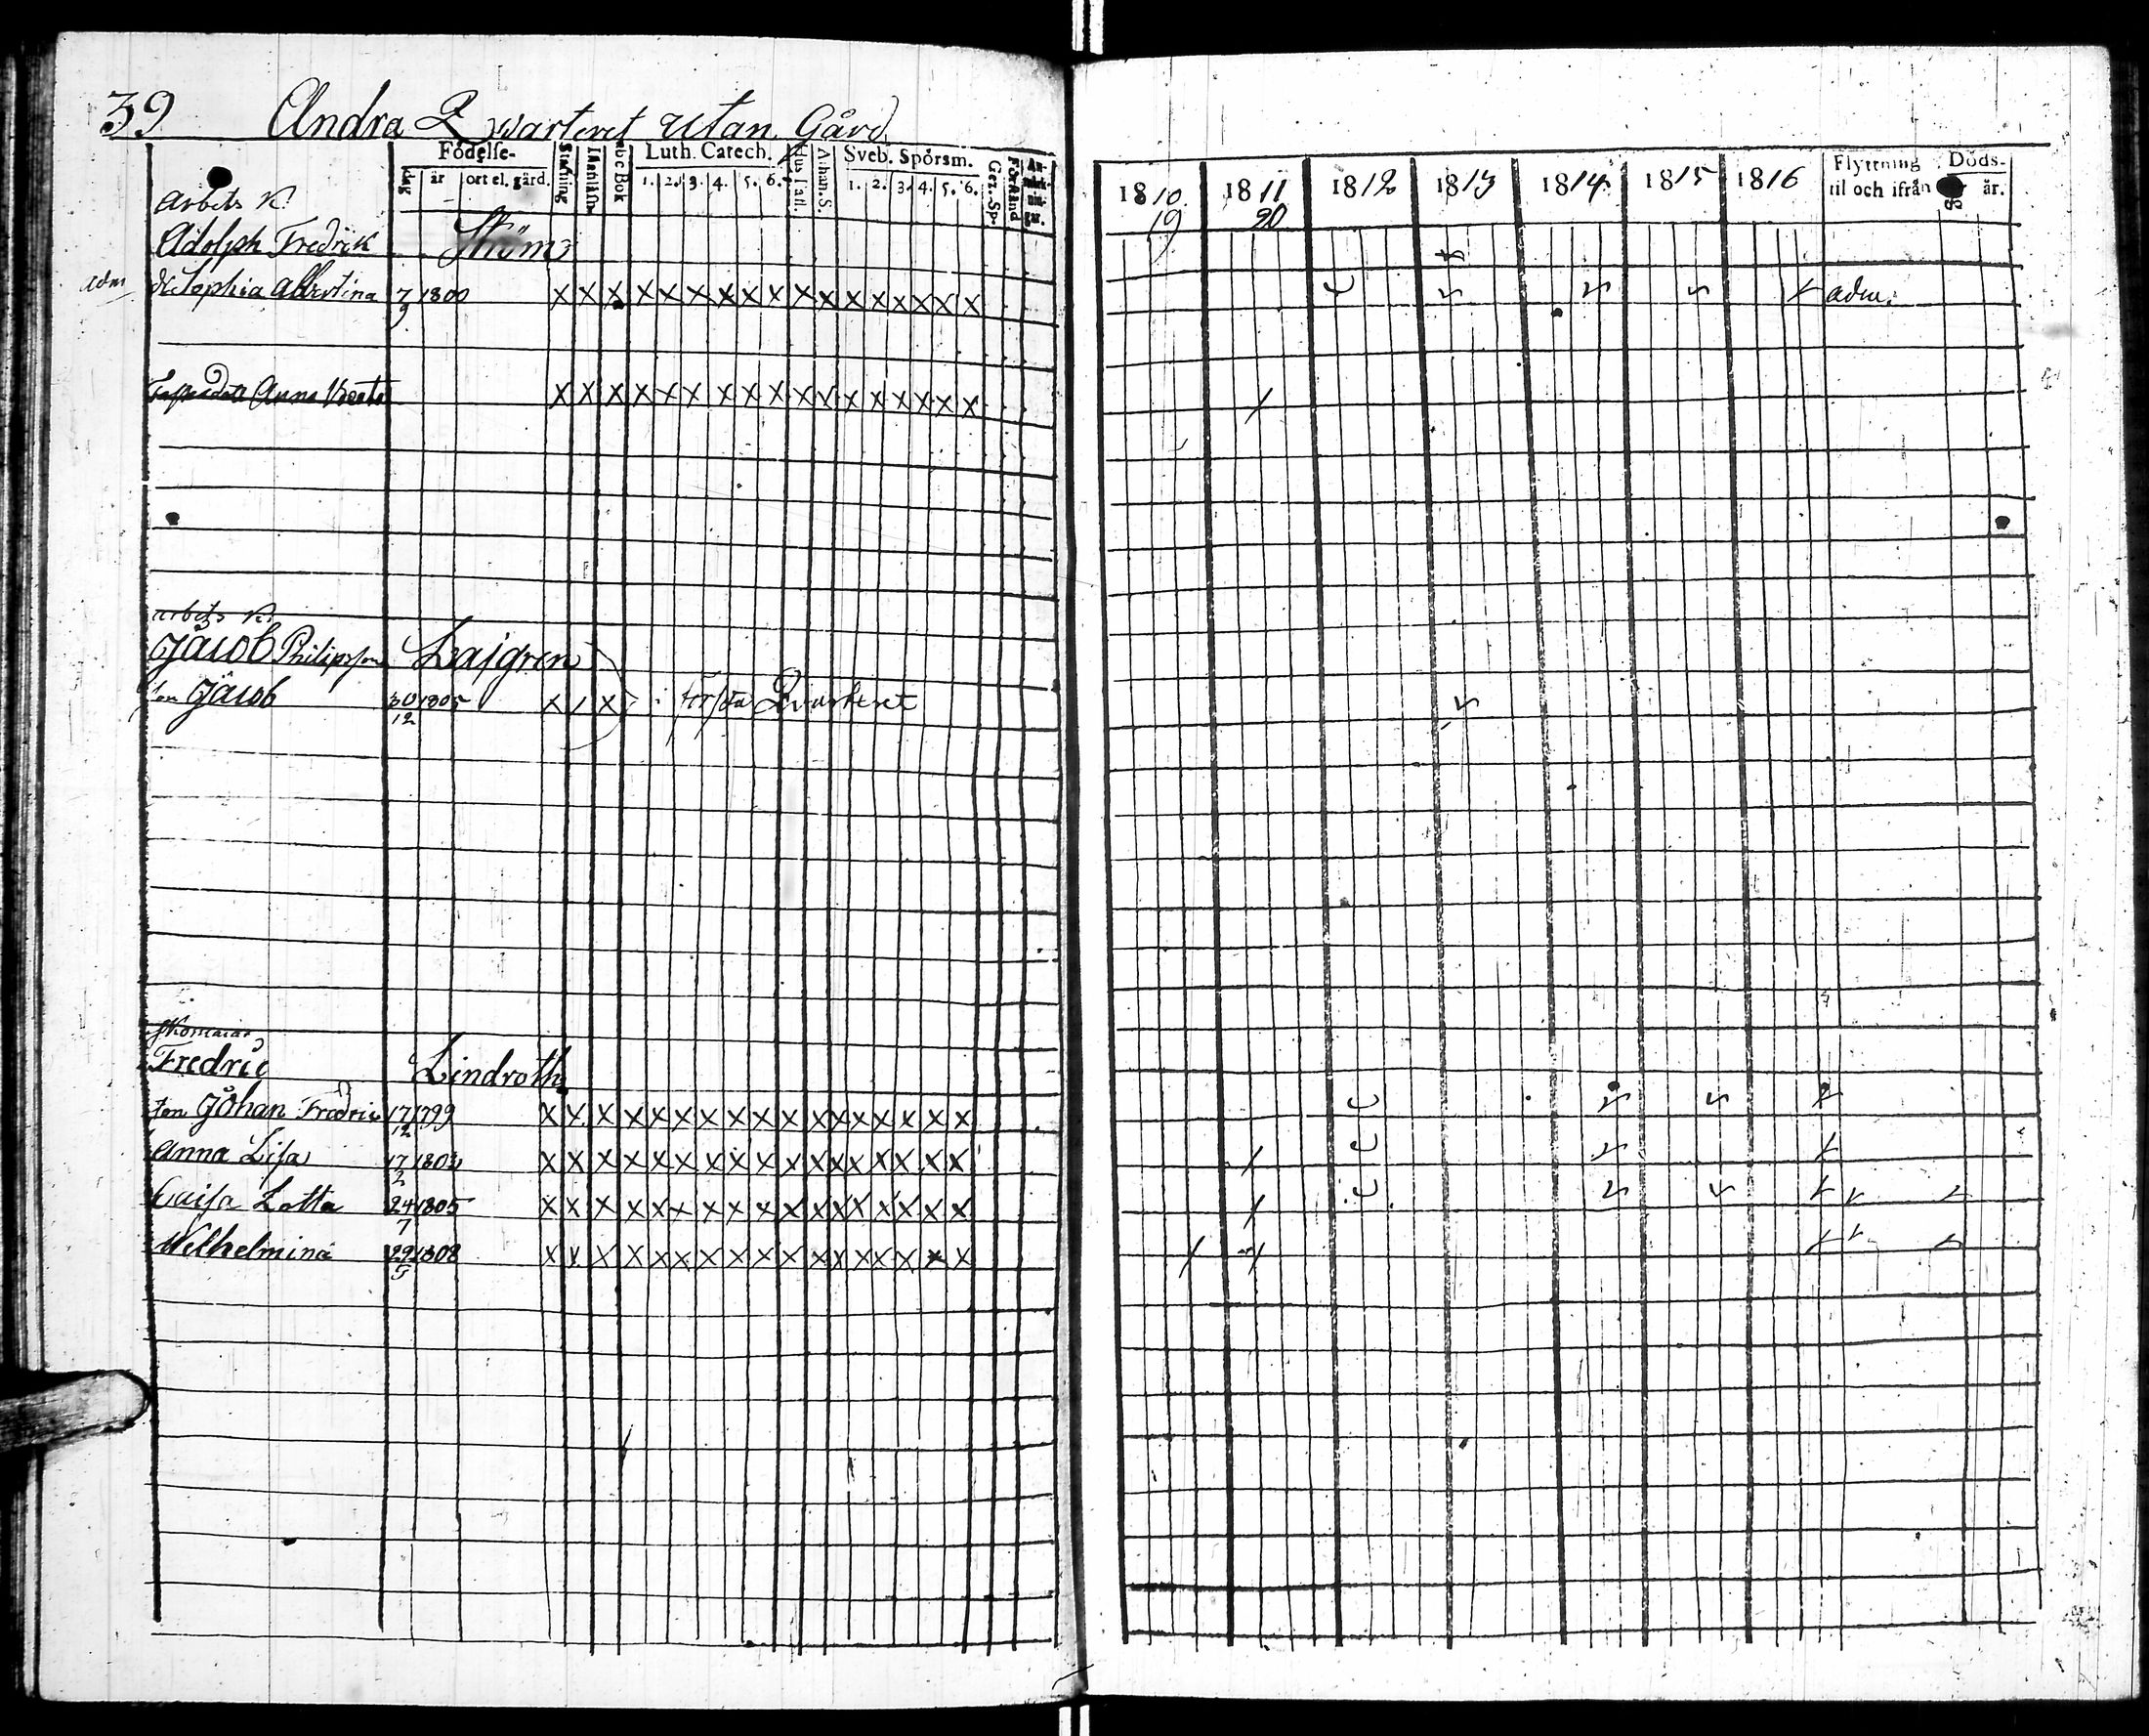 39 Andra Qwarteret utan Gård
Födelse- Luth. Catech. Sveb. Spörsm.
dag år ort el. gård. Stafning Innanläsn abc Bok 1. 2. 3. 4. 5. 6. Hus Tafl. Athan. S. 1. 2. 3. 4. 5. 6. Gez. Sp. Förstånd
1810 1811 1812 1813 1814 1815 1816 Flyttning til och ifrån Döds- år.
19 20
Arbets K
Adolph Fredrik Ström
adm Sophia Albertina 7/9 1800 X X X X X X X X X X X X X X X X X adm.
Anna X X X X X X X X X X X X X X X X X
arbets K.
Jacob Philipsson
son Jacob 30/12 1805 X / X i första Qvarteret
Fredric Lindroth
son Johan Fredric 17/12 1799 X X X X X X X X X X X X X X X X
Anna Lisa 17/2 1802 X X X X X X X X X X X X X X X X
Caisa Lotta 24/7 1805 X X X X X X X X X X X X X X X X
Wilhelmina 29/5 1808 X X X X X X X X X X X X X X X X